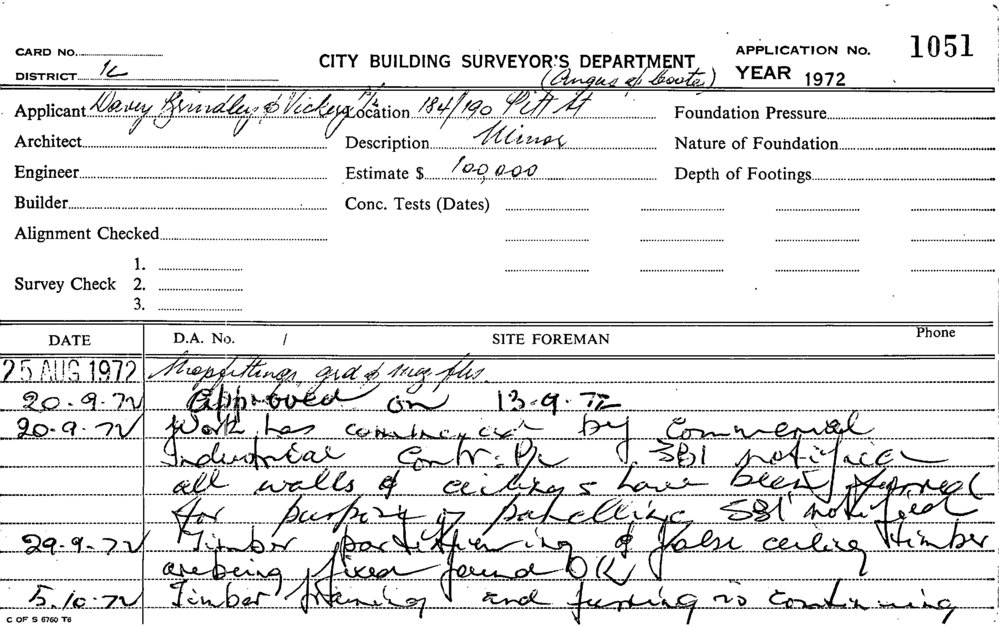 CARD No.
CITY BUILDING SURVEYOR'S DEPARTMENT
APPLICATION No. 1051
DISTRICT 12
(Angus & Coote)
YEAR 1972
Applicant Davey Brindley & Vickery P/L Location 184/190 Pitt St Foundation Pressure
Architect Description Minor Nature of Foundation
Engineer Estimate $ 100,000 Depth of Footings
Builder Conc. Tests (Dates)
Alignment Checked
1.
Survey Check 2.
3.
DATE D.A. No. / SITE FOREMAN Phone
25 AUG 1972 Shopfittings grd & mez flrs.
20-9-72 Approved on 13-9-72
20-9-72 Work has commenced by Commercial
Industrial Contr. SBI notified
all walls & ceilings have been furred
for purpose of panelling SBI notified
29-9-72 Timber partitioning & false ceiling timber
are being fixed found OK
5.10-72 Timber framing and furring is continuing
C OF S 6760 T6